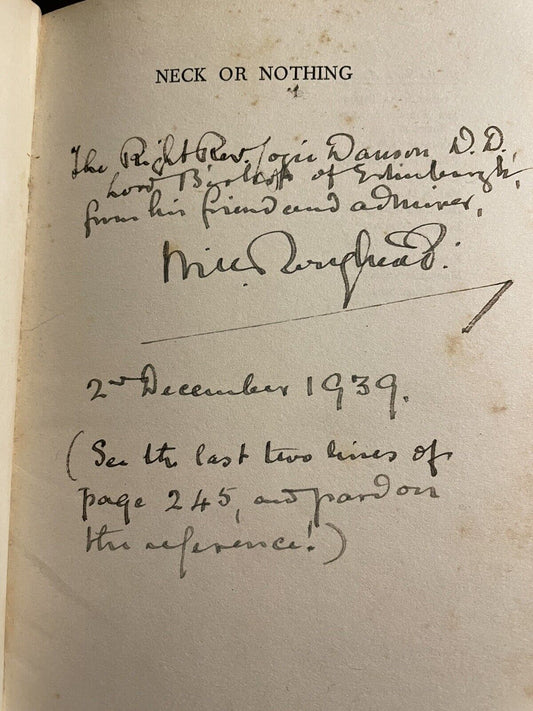 NECK OR NOTHING
The Right Rev. Logie Danson, D.D.,
Lord Bishop of Edinburgh,
from his friend and admirer,
Will. Roughead.
2nd December 1939.
(See the last two lines of
page 245, and pardon
the reference!)